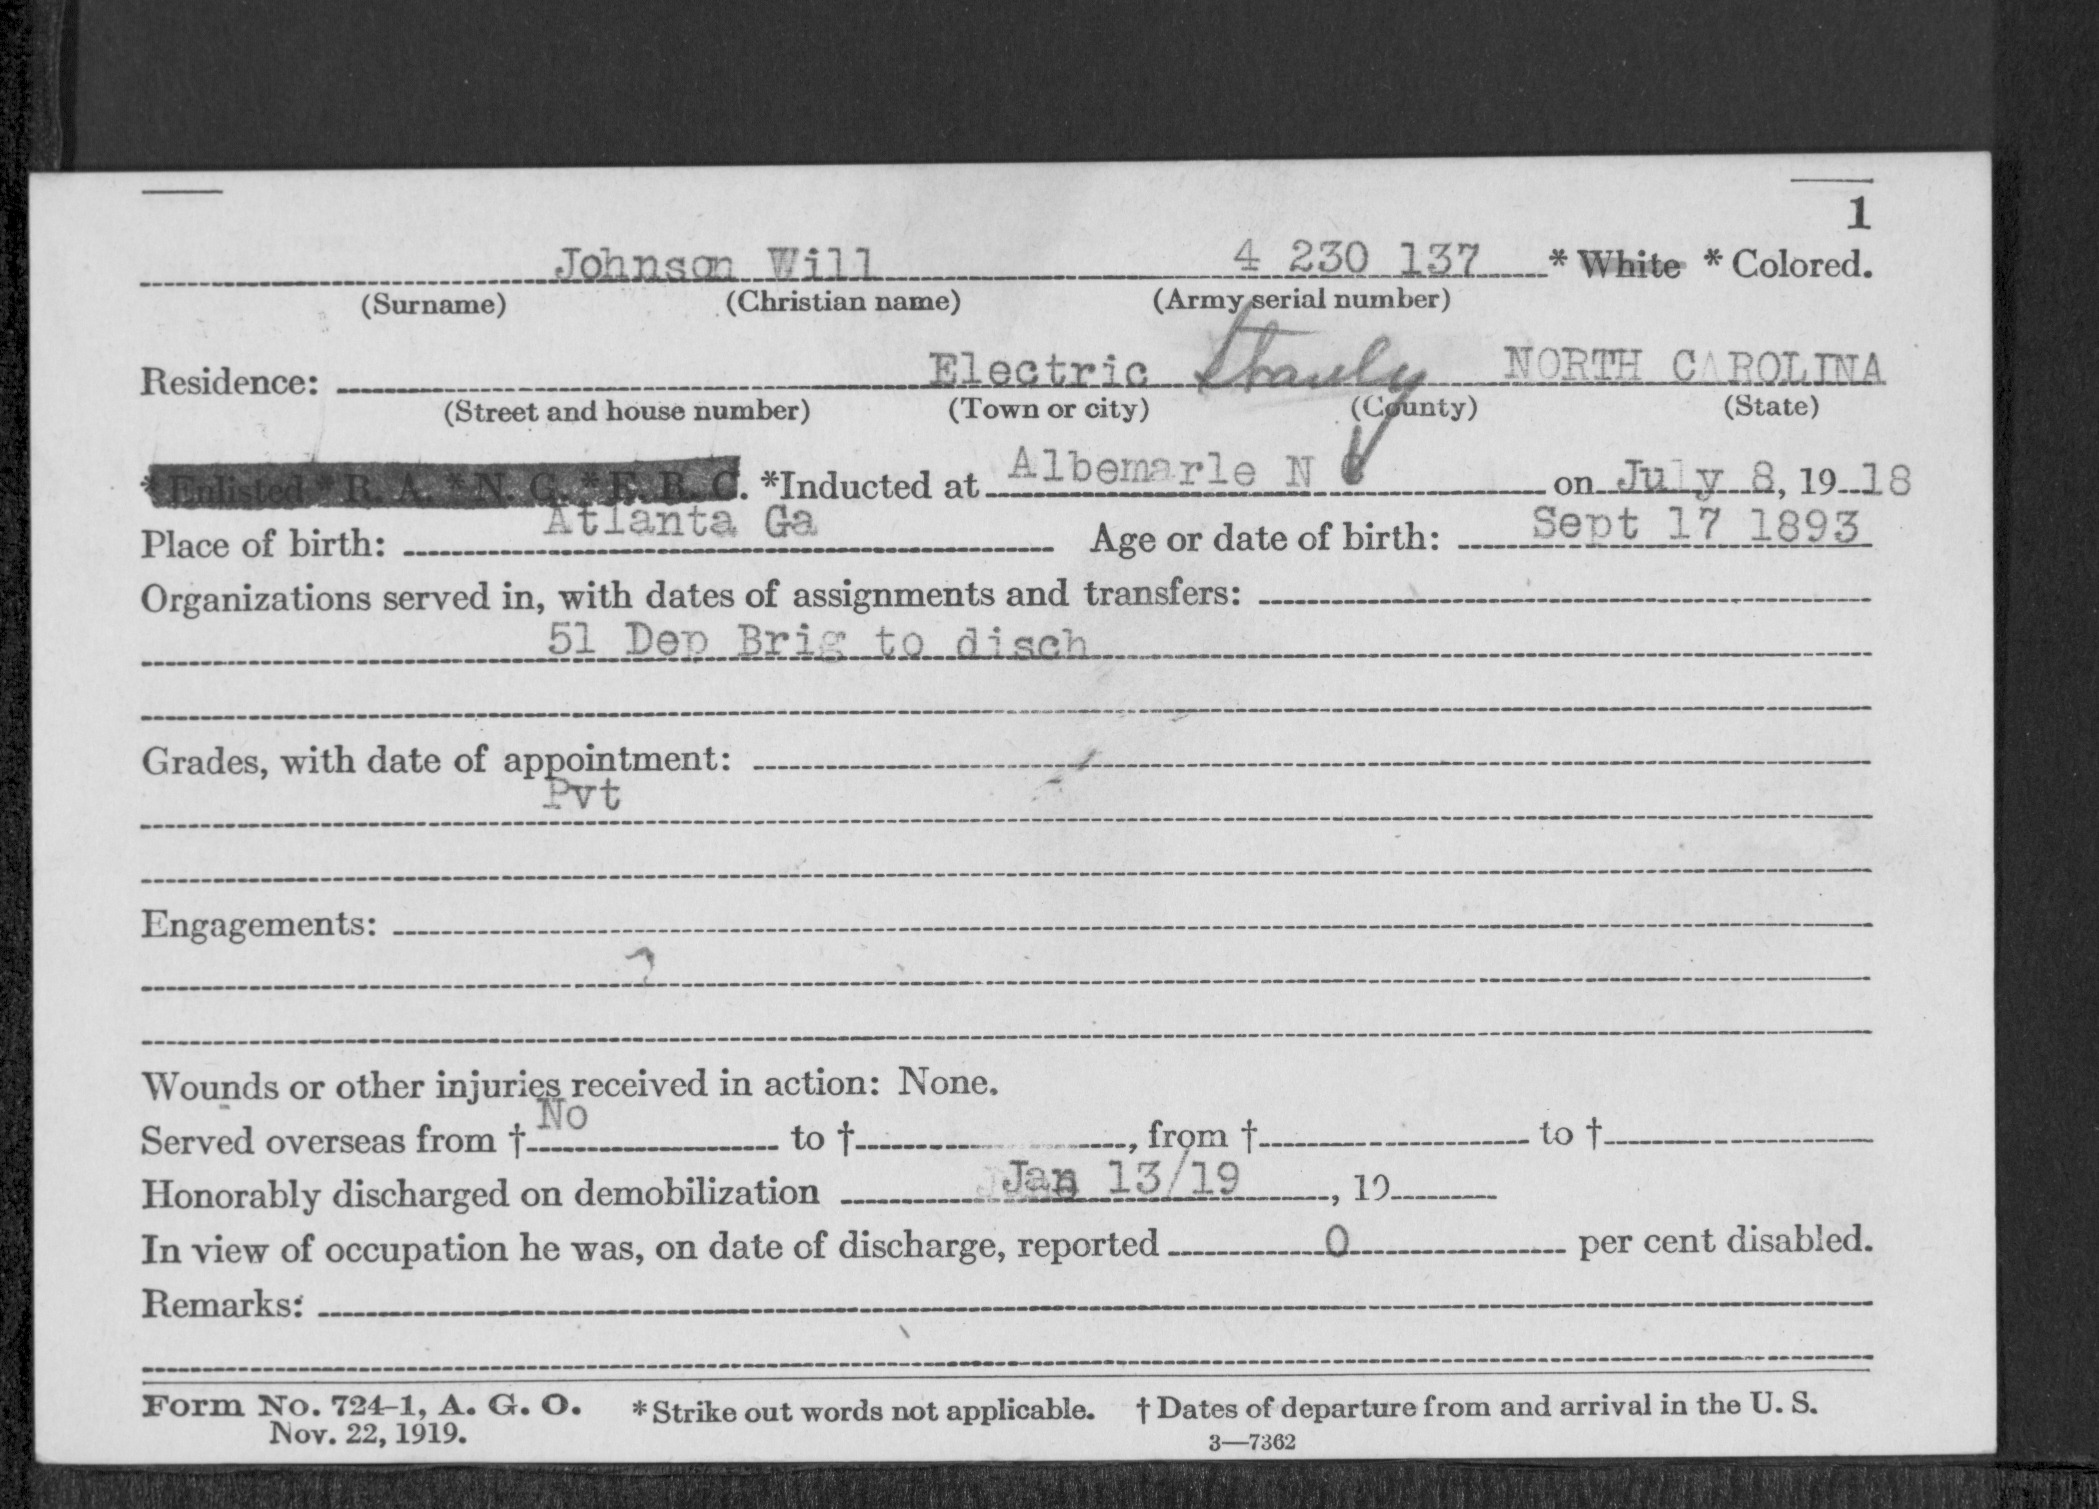 1
Johnson Will 4 230 137 * White * Colored.
(Surname) (Christian name) (Army serial number)
Residence: Electric Stanly NORTH CAROLINA
(Street and house number) (Town or city) (County) (State)
* Enlisted * R. A. * N. G. * E. R. C. *Inducted at Albemarle N C on July 8, 19 18
Place of birth: Atlanta Ga Age or date of birth: Sept 17 1893
Organizations served in, with dates of assignments and transfers:
51 Dep Brig to disch
Grades, with date of appointment:
Pvt
Engagements:
Wounds or other injuries received in action: None.
Served overseas from † No to †, from † to †
Honorably discharged on demobilization Jan 13/19, 19
In view of occupation he was, on date of discharge, reported 0 per cent disabled.
Remarks:
Form No. 724-1, A. G. O. *Strike out words not applicable. † Dates of departure from and arrival in the U. S.
Nov. 22, 1919. 3—7362